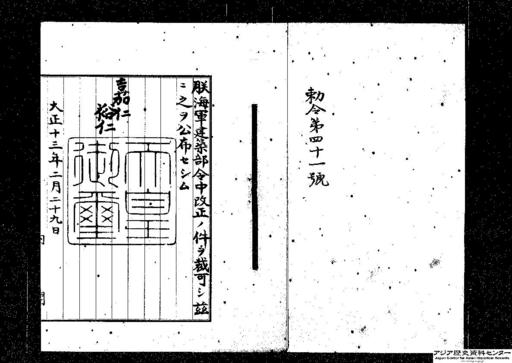 勅令第四十一號
朕海軍建築部令中改正ノ件ヲ裁可シ茲
ニ之ヲ公布セシム
嘉仁
裕仁
天皇御璽
大正十三年二月二十九日
内閣
アジア歴史資料センター
Japan Center for Asian Historical Records